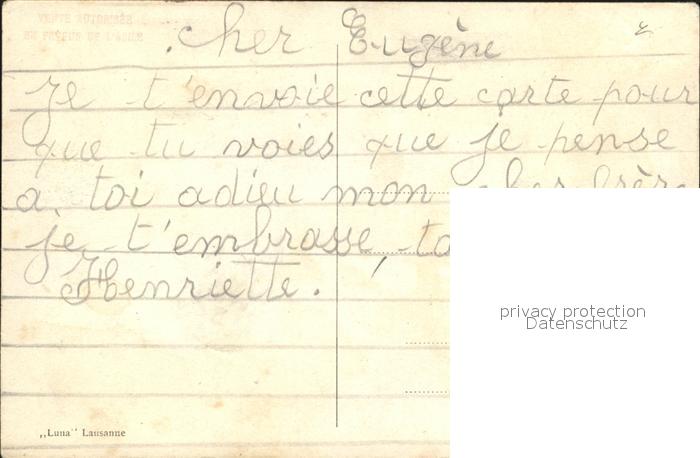 VENTE AUTORISÉE
EN FAVEUR DE L'ASILE
cher Eugène
Je t'envoie cette carte pour
que tu voies que je pense
a toi adieu mon cher frère
je t'embrasse, ta
Henriette.
privacy protection
Datenschutz
„Luna" Lausanne